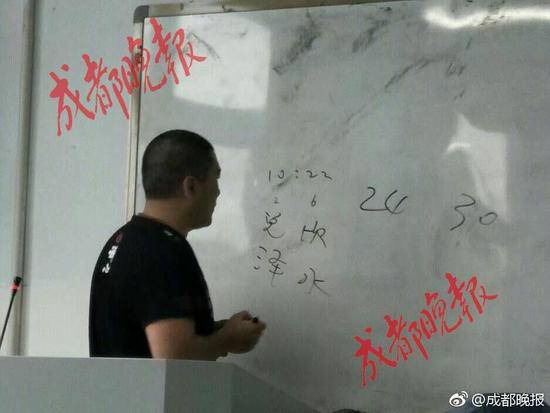 成都晚报
10:22
2 6 24 30
兑 坎
泽 水
成都晚报
@成都晚报